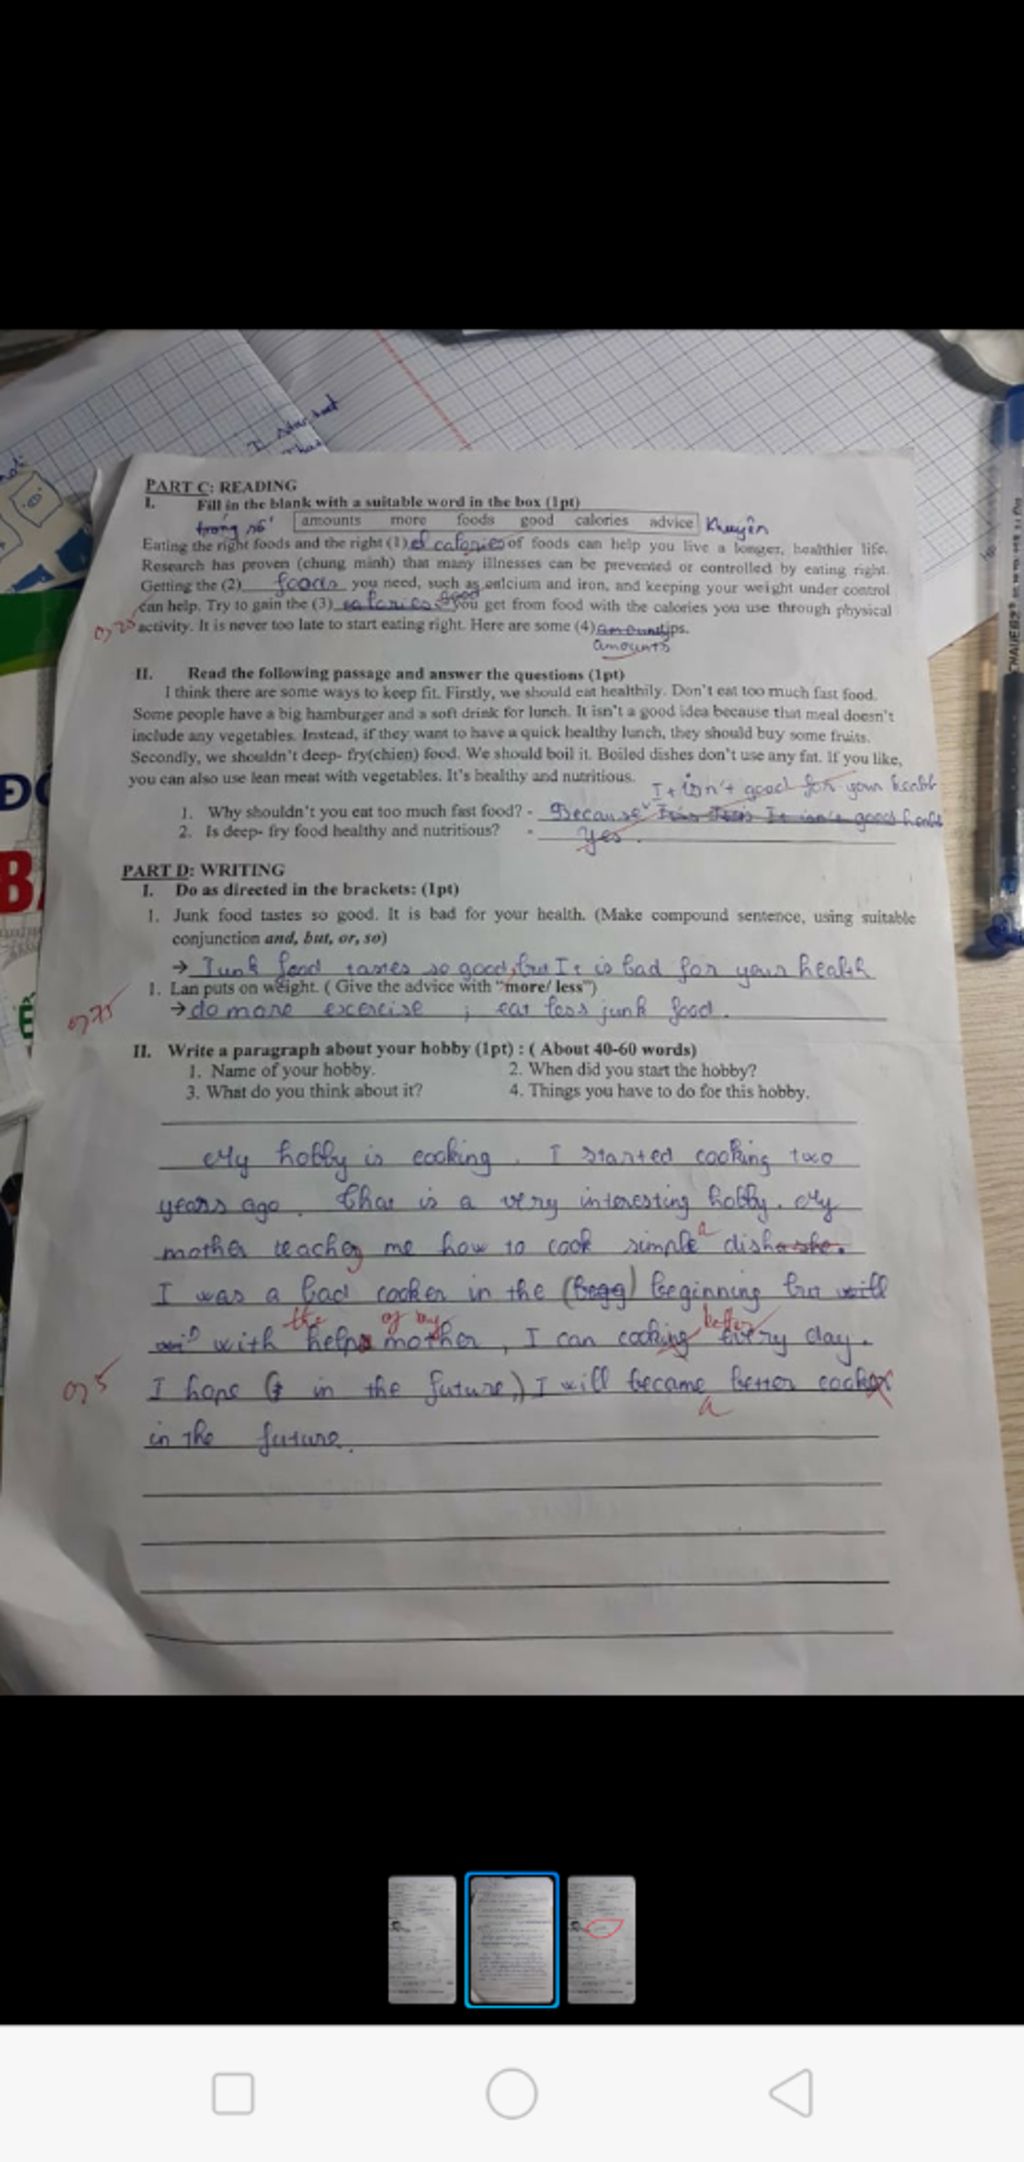 PART C: READING
I. Fill in the blank with a suitable word in the box (1pt)
trong số amounts more foods good calories advice Khuyên
Eating the right foods and the right (1) calories of foods can help you live a longer, healthier life.
Research has proven (chung minh) that many illnesses can be prevented or controlled by eating right.
Getting the (2) foods you need, such as calcium and iron, and keeping your weight under control
good
can help. Try to gain the (3) calories you get from food with the calories you use through physical
activity. It is never too late to start eating right. Here are some (4) amounts tips.
amounts
II. Read the following passage and answer the questions (1pt)
I think there are some ways to keep fit. Firstly, we should eat healthily. Don't eat too much fast food.
Some people have a big hamburger and a soft drink for lunch. It isn't a good idea because that meal doesn't
include any vegetables. Instead, if they want to have a quick healthy lunch, they should buy some fruits.
Secondly, we shouldn't deep- fry(chien) food. We should boil it. Boiled dishes don't use any fat. If you like,
you can also use lean meat with vegetables. It's healthy and nutritious.
It isn't good for your health
1. Why shouldn't you eat too much fast food? - Because It isn't good
2. Is deep- fry food healthy and nutritious? - Yes.
PART D: WRITING
I. Do as directed in the brackets: (1pt)
1. Junk food tastes so good. It is bad for your health. (Make compound sentence, using suitable
conjunction and, but, or, so)
→ Junk food tastes so good, but It is bad for your health
1. Lan puts on weight. ( Give the advice with "more/ less")
0,75
→ do more excercise ; eat less junk food.
II. Write a paragraph about your hobby (1pt) : ( About 40-60 words)
1. Name of your hobby. 2. When did you start the hobby?
3. What do you think about it? 4. Things you have to do for this hobby.
My hobby is cooking. I started cooking two
years ago. That is a very interesting hobby. My
mother teaches me how to cook simple a dish
I was a bad cooker in the (begg) beginning but will
the of my better
with help mother, I can cooking every day.
0,5
I hope (I in the future,) I will became better cooker
a
in the future.